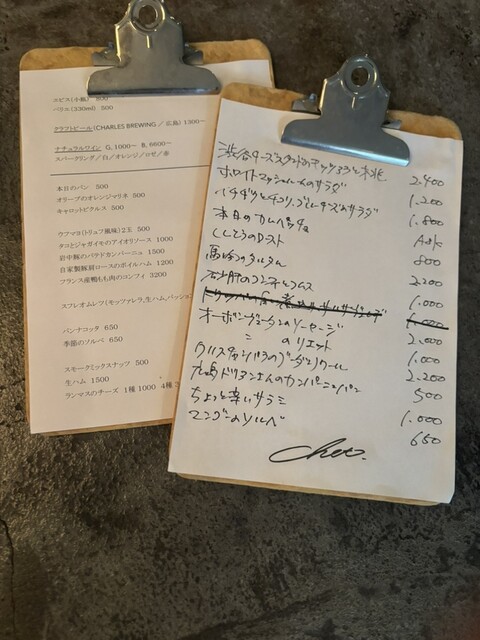 コピス(小瓶) 800
ペリエ(330ml) 500
クラフトビール(CHARLES BREWING / 広島) 1300～
ナチュラルワイン G. 1000～ B. 6600～
スパークリング / 白 / オレンジ / ロゼ / 赤
本日のパン 500
オリーブのオレンジマリネ 500
キャロットピクルス 500
ウフマヨ(トリュフ風味)2玉 500
タコとジャガイモのアイオリソース 1000
岩中豚のパテドカンパーニュ 1500
自家製豚肩ロースのボイルハム 1200
フランス産鴨もも肉のコンフィ 3200
スフレオムレツ(モッツァレラ,生ハム,バッシュ
パンナコッタ 650
季節のソルベ 650
スモークミックスナッツ 500
生ハム 1500
ランマスのチーズ 1種 1000 4種
渋谷チーズスタンドのブッラータと桃 2.400
ホワイトマッシュルームのサラダ 1.200
ハチミツとゴルゴンゾーラチーズのサラダ 1.800
本日のカルパッチョ Ask
ししとうのロースト 800
馬肉のタルタル 2.200
砂肝のコンフィ 1.000
1.000
オーボンヴュータンのソーセージ 2.000
〃 のリエット 1.000
クリスチャンパラのブーダンノワール 2.200
広島ドリアンさんのカンパーニュパン 500
ちょっと辛いサラミ 1.000
マンゴーのソルベ 650